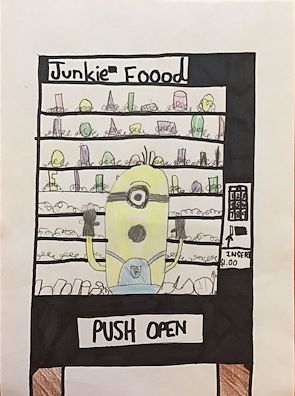 Junkie Foood
INSERT
$1.00
PUSH OPEN